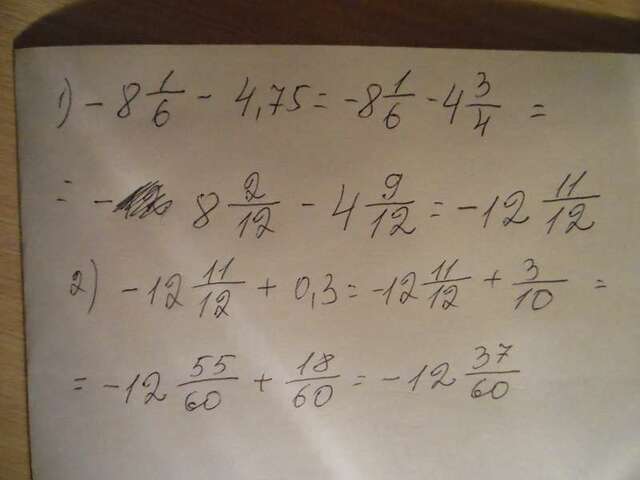 1) - 8 1/6 - 4,75 = -8 1/6 - 4 3/4 =
= - 8 2/12 - 4 9/12 = -12 11/12
2) -12 11/12 + 0,3 = -12 11/12 + 3/10 =
= -12 55/60 + 18/60 = -12 37/60